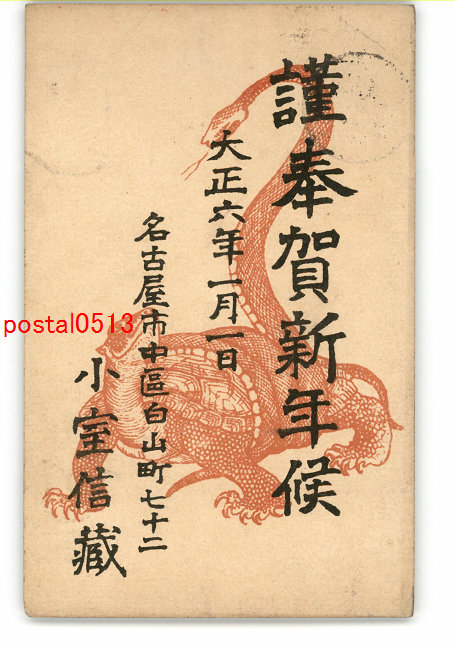 謹奉賀新年候
大正六年一月一日
名古屋市中區白山町七十二
小室信藏
postal0513